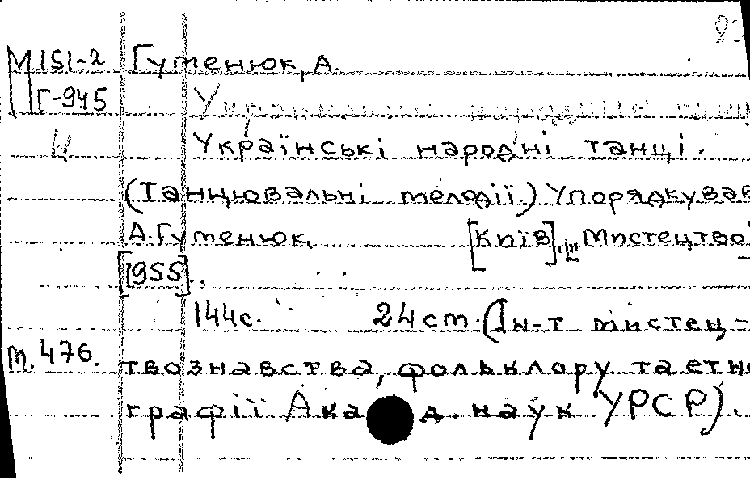 М151-2 Гуменюк, А.
Г-945
Українські народні танці.
(Танцювальні мелодії.) Упорядкував
А. Гуменюк. [Київ], "Мистецтво"
[1955].
144с. 24 cm. (Ін-т мистец-
т. 476. твознавства, фольклору та етно
графії Акад. наук УРСР).